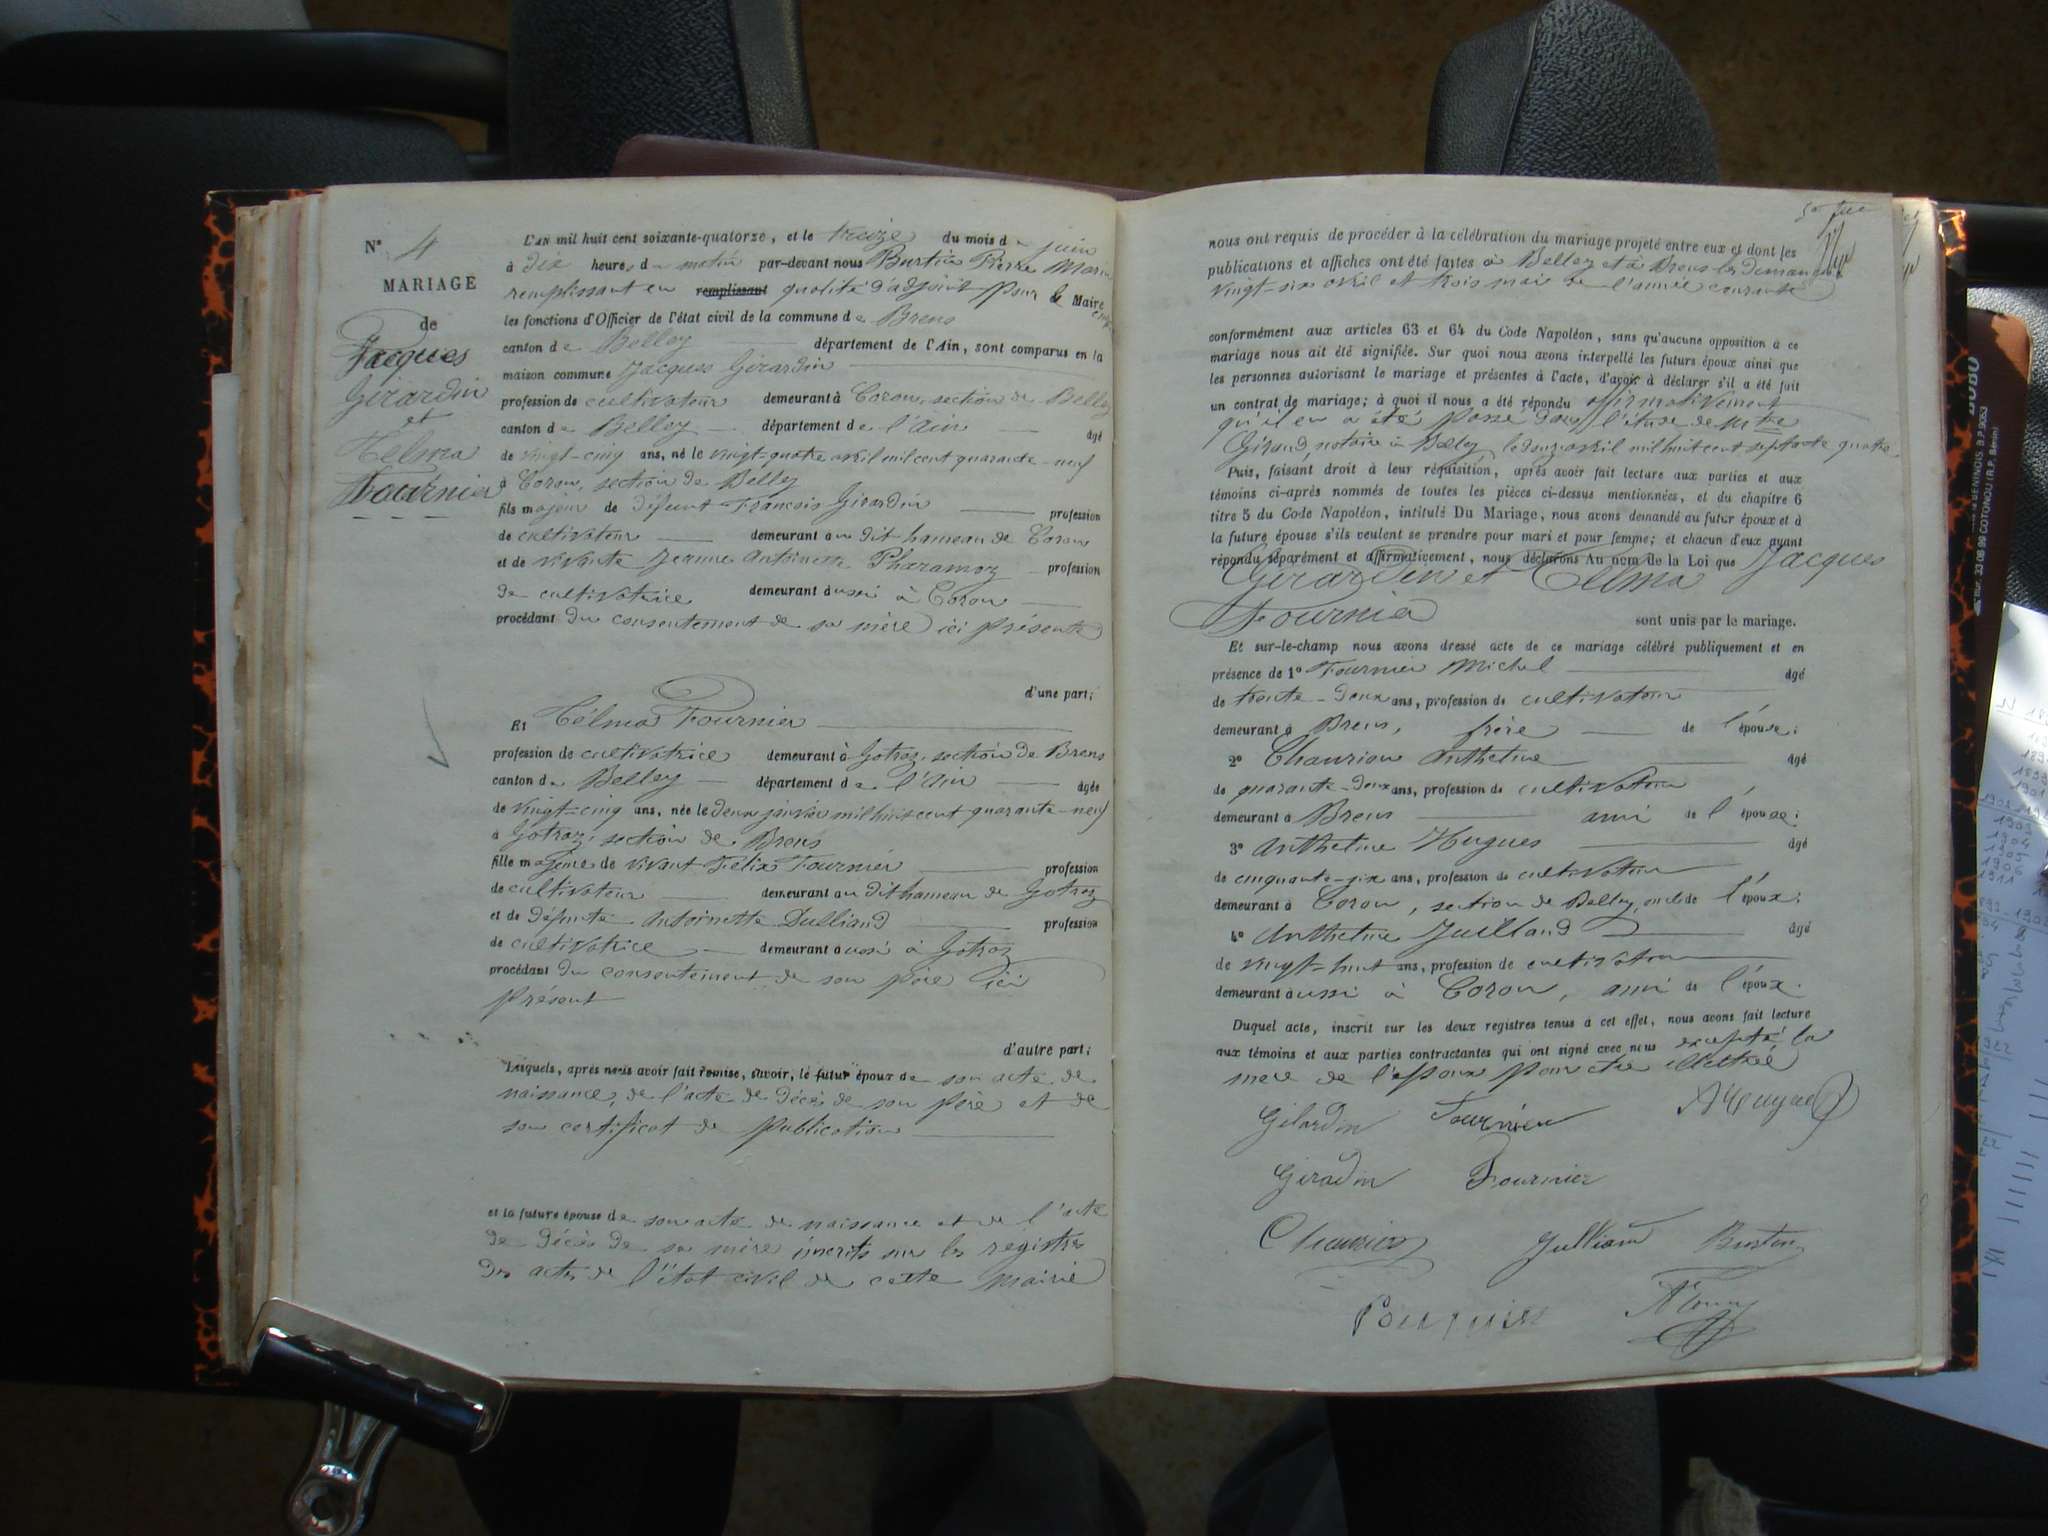 N° 4
MARIAGE
de
Jacques
Girardin
et
Telma
Fournier
L'AN mil huit cent soixante-quatorze, et le treize du mois de juin
à dix heures du matin par-devant nous Burtin Pierre Marin
remplissant en remplissant qualité d'adjoint pour le Maire
les fonctions d'Officier de l'état civil de la commune de Brens
canton de Belley département de l'Ain, sont comparus en la
maison commune Jacques Girardin
profession de cultivateur demeurant à Coron, section de Belley
canton de Belley département de l'Ain âgé
de vingt-cinq ans, né le vingt-quatre avril mil cent quarante-neuf
à Coron, section de Belley
fils majeur de défunt François Girardin profession
de cultivateur demeurant au dit hameau de Coron
et de vivante Jeanne Antoinette Pharamoz profession
de cultivatrice demeurant aussi à Coron
procédant du consentement de sa mère ici présente
d'une part;
Et Célma Fournier
profession de cultivatrice demeurant à Gotraz, section de Brens
canton de Belley département de l'Ain âgée
de vingt-cinq ans, née le deux janvier mil huit cent quarante-neuf
à Gotraz, section de Brens
fille majeure de vivant Félix Fournier profession
de cultivateur demeurant au dit hameau de Gotraz
et de défunte Antoinette Dulliand profession
de cultivatrice demeurant aussi à Gotraz
procédant du consentement de son père ici
présent
d'autre part;
Lesquels, après nous avoir fait remise, savoir, le futur époux de son acte de
naissance, de l'acte de décès de son père et de
son certificat de publication
et la future épouse de son acte de naissance et de l'acte
de décès de sa mère inscrits sur les registres
des actes de l'état civil de cette mairie
nous ont requis de procéder à la célébration du mariage projeté entre eux et dont les
publications et affiches ont été faites à Belley et à Brens les dimanches
vingt-six avril et trois mai de l'année courante
conformément aux articles 63 et 64 du Code Napoléon, sans qu'aucune opposition à ce
mariage nous ait été signifiée. Sur quoi nous avons interpellé les futurs époux ainsi que
les personnes autorisant le mariage et présentes à l'acte, d'avoir à déclarer s'il a été fait
un contrat de mariage; à quoi il nous a été répondu affirmativement
qu'il en a été passé dans l'étude de Mtre
Girand, notaire à Belley, le douze avril mil huit cent septante quatre.
Puis, faisant droit à leur réquisition, après avoir fait lecture aux parties et aux
témoins ci-après nommés de toutes les pièces ci-dessus mentionnées, et du chapitre 6
titre 5 du Code Napoléon, intitulé Du Mariage, nous avons demandé au futur époux et à
la future épouse s'ils veulent se prendre pour mari et pour femme; et chacun d'eux ayant
répondu séparément et affirmativement, nous déclarons Au nom de la Loi que Jacques
Girardin et Telma
Fournier sont unis par le mariage.
Et sur-le-champ nous avons dressé acte de ce mariage célébré publiquement et en
présence de 1° Fournier Michel âgé
de trente-deux ans, profession de cultivateur
demeurant à Brens, frère de l'épouse;
2° Chaurion Anthelme âgé
de quarante-deux ans, profession de cultivateur
demeurant à Brens ami de l'épouse;
3° Anthelme Hugues âgé
de cinquante-six ans, profession de cultivateur
demeurant à Coron, section de Belley, oncle de l'époux;
4° Anthelme Juilland âgé
de vingt-huit ans, profession de cultivateur
demeurant aussi à Coron, ami de l'époux.
Duquel acte, inscrit sur les deux registres tenus à cet effet, nous avons fait lecture
aux témoins et aux parties contractantes qui ont signé avec nous excepté la
mère de l'époux pour être illettrée
Girardin Fournier AHugues
Giradin Fournier
Julliand Burtin